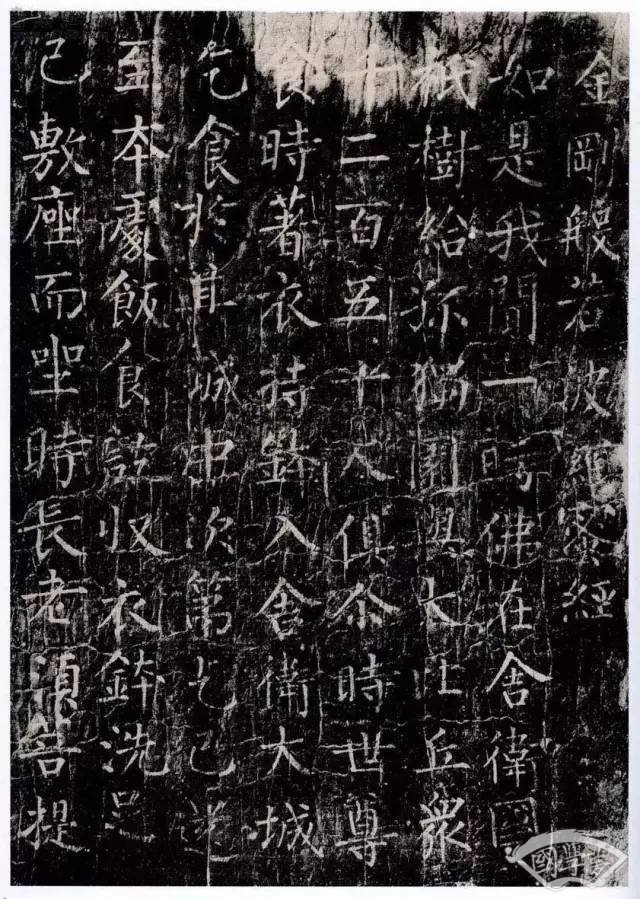 金剛般若波羅蜜經
如是我聞一時佛在舍衛國
祇樹給孤獨園與大比丘衆
千二百五十人俱尒時世尊
食時著衣持鉢入舍衛大城
乞食於其城中次第乞已還
至本處飯食訖収衣鉢洗足
已敷座而坐時長老須菩提
國學